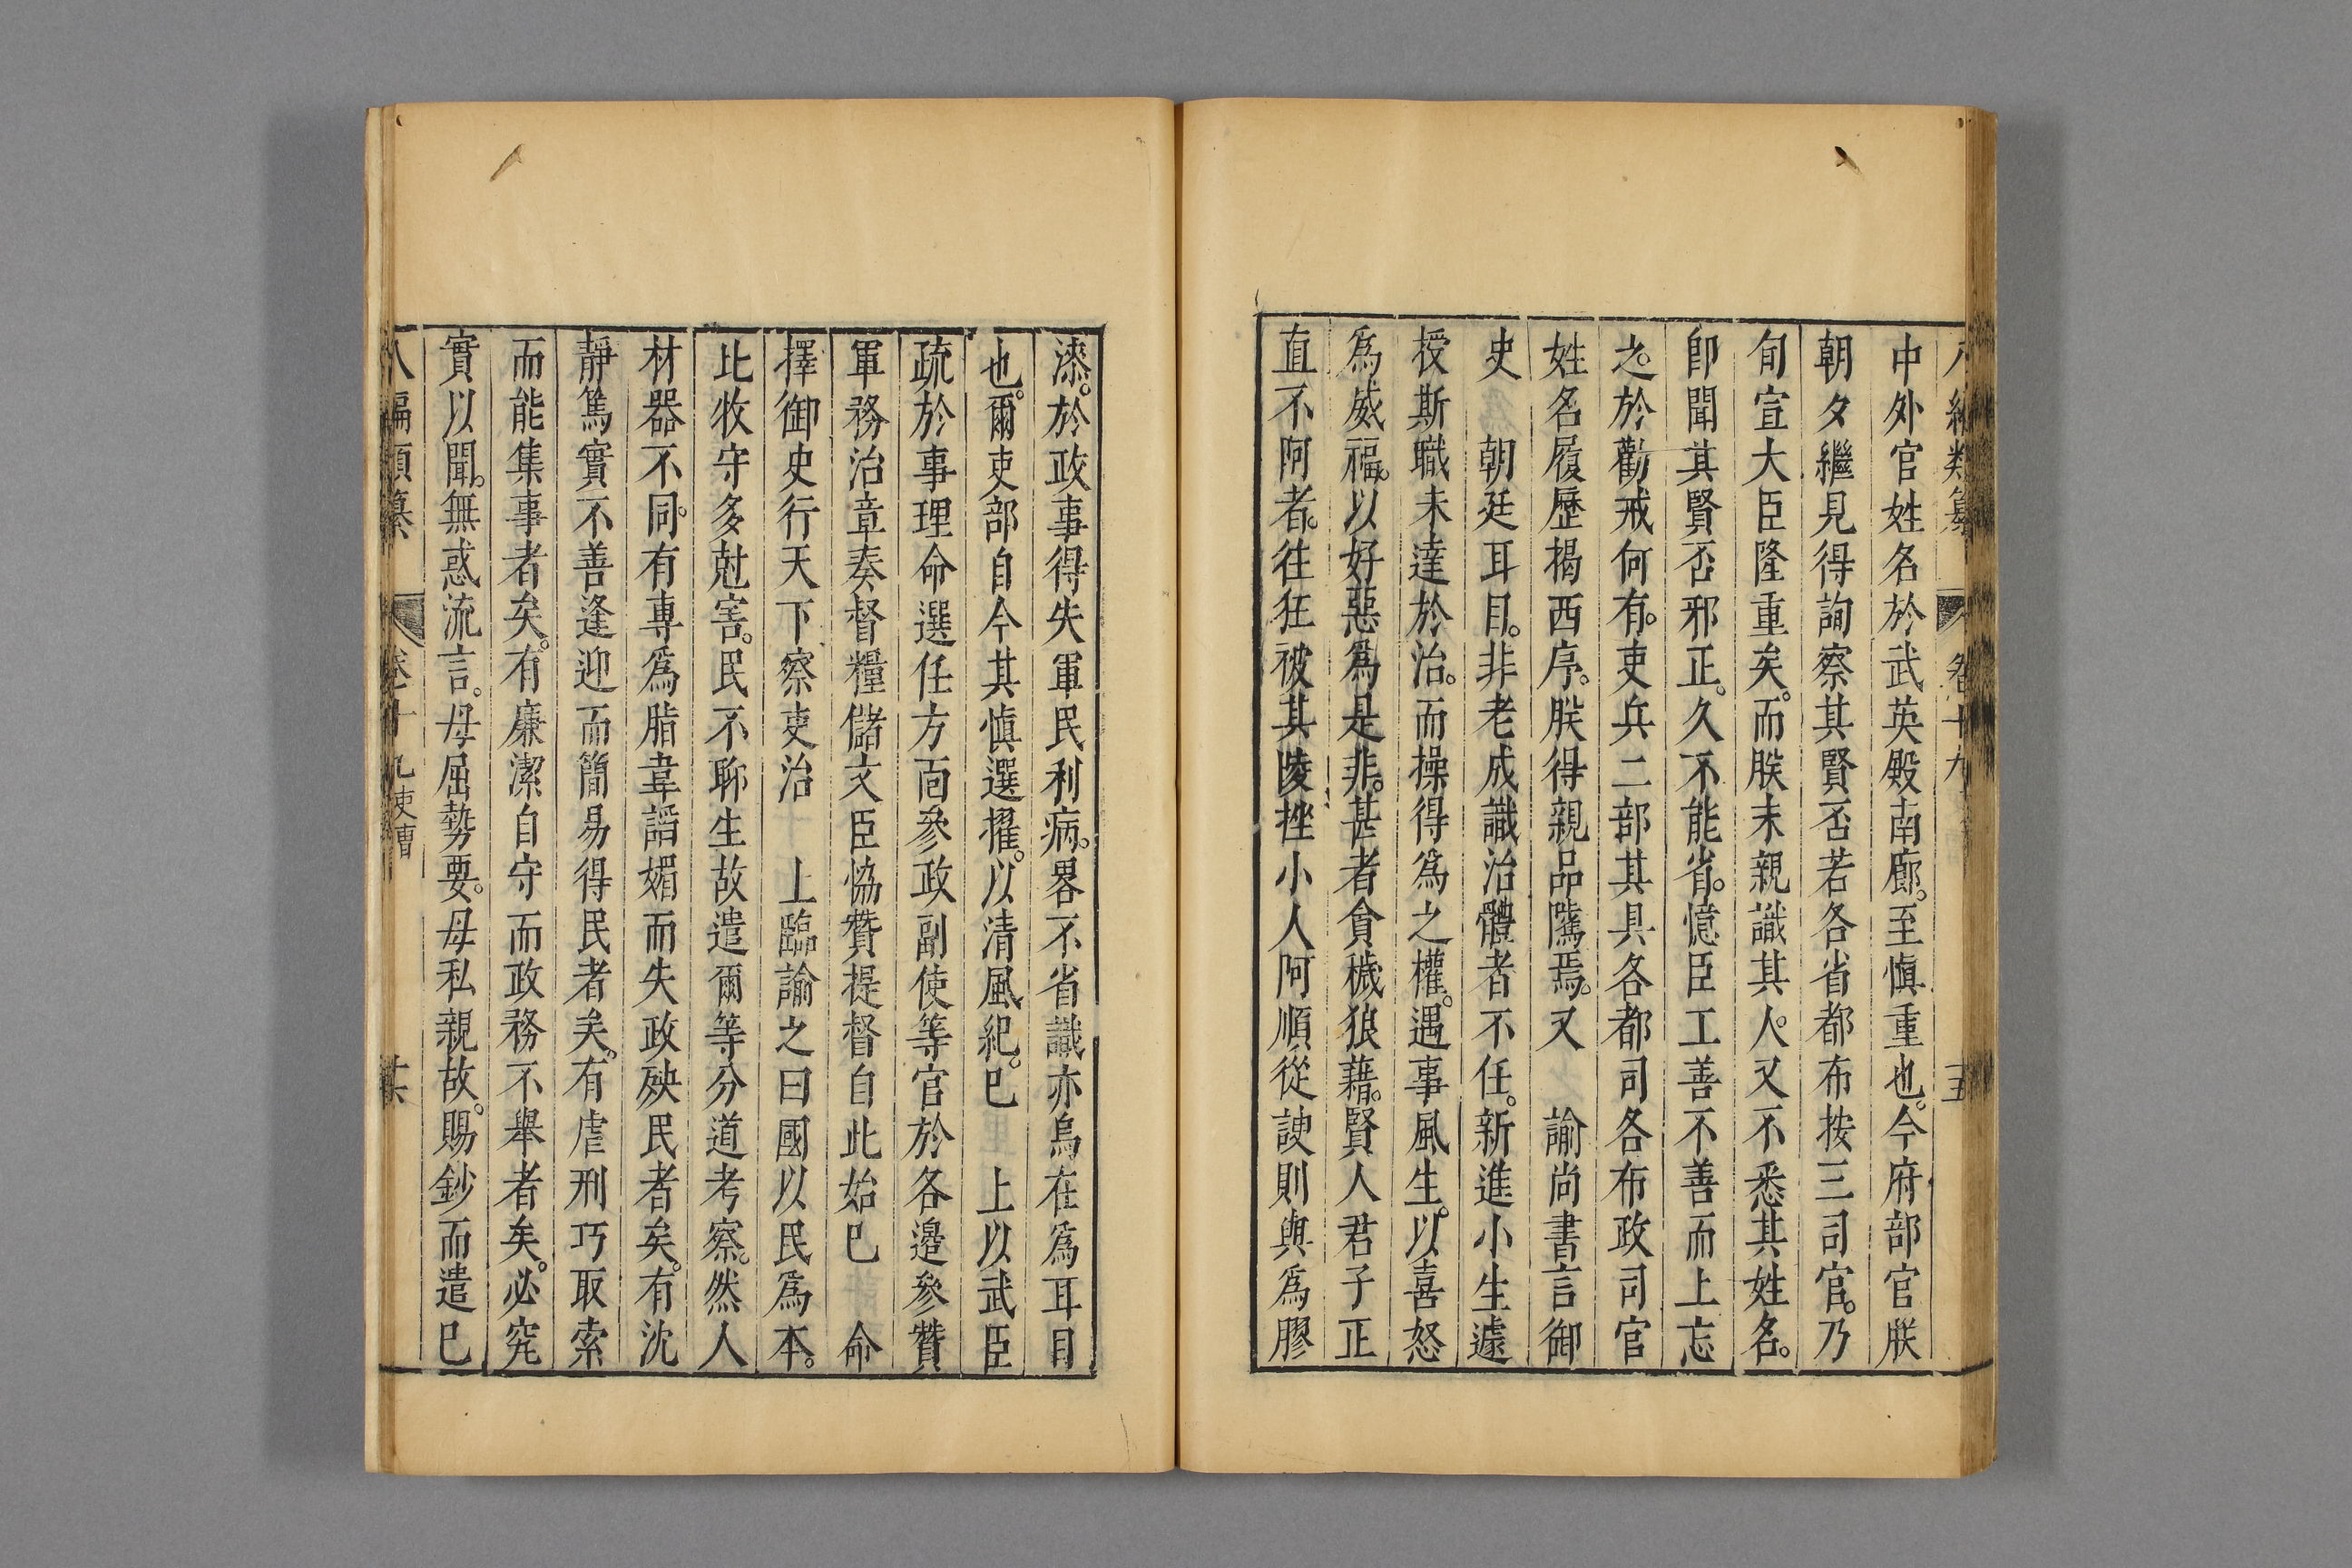 中外官姓名於武英殿南廊。至慎重也。今府部官朕
朝夕繼見得詢察其賢否若各省都布按三司官。乃
旬宣大臣隆重矣。而朕未親識其人。又不悉其姓名。
卽聞其賢否邪正。久不能省。憶臣工善不善而上忘
之。於勸戒何有。吏兵二部其具各都司各布政司官
姓名履歷揭西序。朕得親品隲焉。又　諭尚書言御
史　朝廷耳目。非老成識治體者不任。新進小生遽
授斯職未達於治。而操得爲之權。遇事風生。以喜怒
爲威福。以好惡爲是非。甚者貪穢狼藉。賢人君子正
直不阿者。往往被其陵挫小人阿順從諛則與爲膠
漆。於政事得失軍民利病。畧不省識亦烏在爲耳目
也。爾吏部自今其慎選擢。以清風紀。巳　上以武臣
疏於事理命選任方面參政副使等官於各邊參贊
軍務治章奏督糧儲文臣恊贊提督自此始巳　命
擇御史行天下察吏治　上臨諭之曰國以民爲本。
比牧守多尅害。民不聊生故遣爾等分道考察。然人
材器不同。有專爲脂韋謟媚而失政殃民者矣。有沈
靜篤實不善逢迎而簡易得民者矣。有虐刑巧取索
而能集事者矣。有廉潔自守而政務不舉者矣。必究
實以聞。無惑流言。毋屈勢要。毋私親故。賜鈔而遣巳
八編類纂　卷十九吏曹